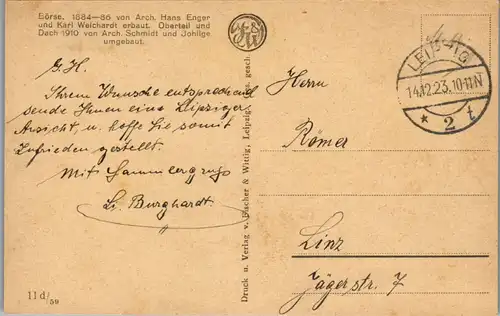 Börse. 1884—86 von Arch. Hans Enger
und Karl Weichardt erbaut. Oberteil und
Dach 1910 von Arch. Schmidt und Johlige
umgebaut.
G. H.
Ihrem Wunsche entsprechend
sende Ihnen eine Leipziger
Ansicht, u. hoffe Sie somit
zufrieden gestellt.
Mit Sammlergruß
Burghardt.
11d/59
Druck u. Verlag v. Fischer & Wittig, Leipzig. ges. gesch.
LEIPZIG
14.12.23. 10-11 V.
* 2 t
Herrn
Romer
Linz
Jägerstr. 7